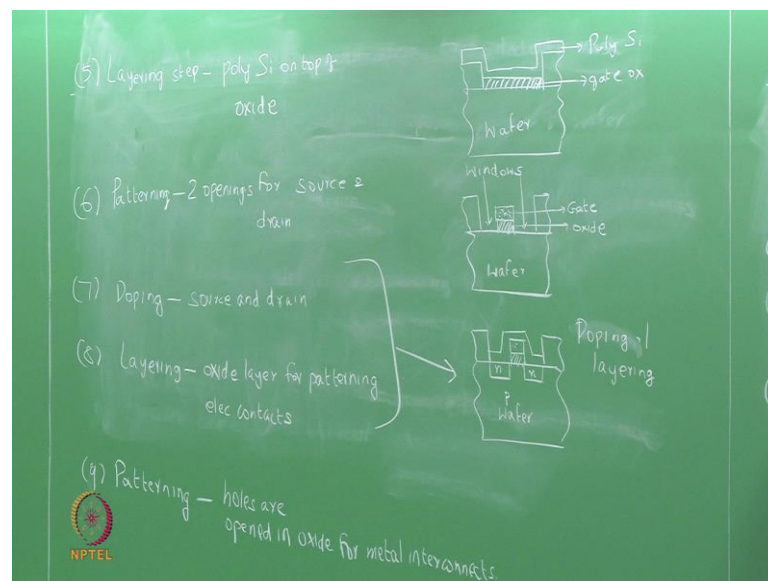 (5) Layering step – poly Si on top of
oxide
Poly Si
gate ox
Wafer
(6) Patterning – 2 openings for source &
drain
Windows
Gate
oxide
Wafer
(7) Doping – source and drain
(8) Layering – oxide layer for patterning
elec contacts
Doping /
layering
n
n
P
Wafer
(9) Patterning – holes are
opened in oxide for metal interconnects.
NPTEL